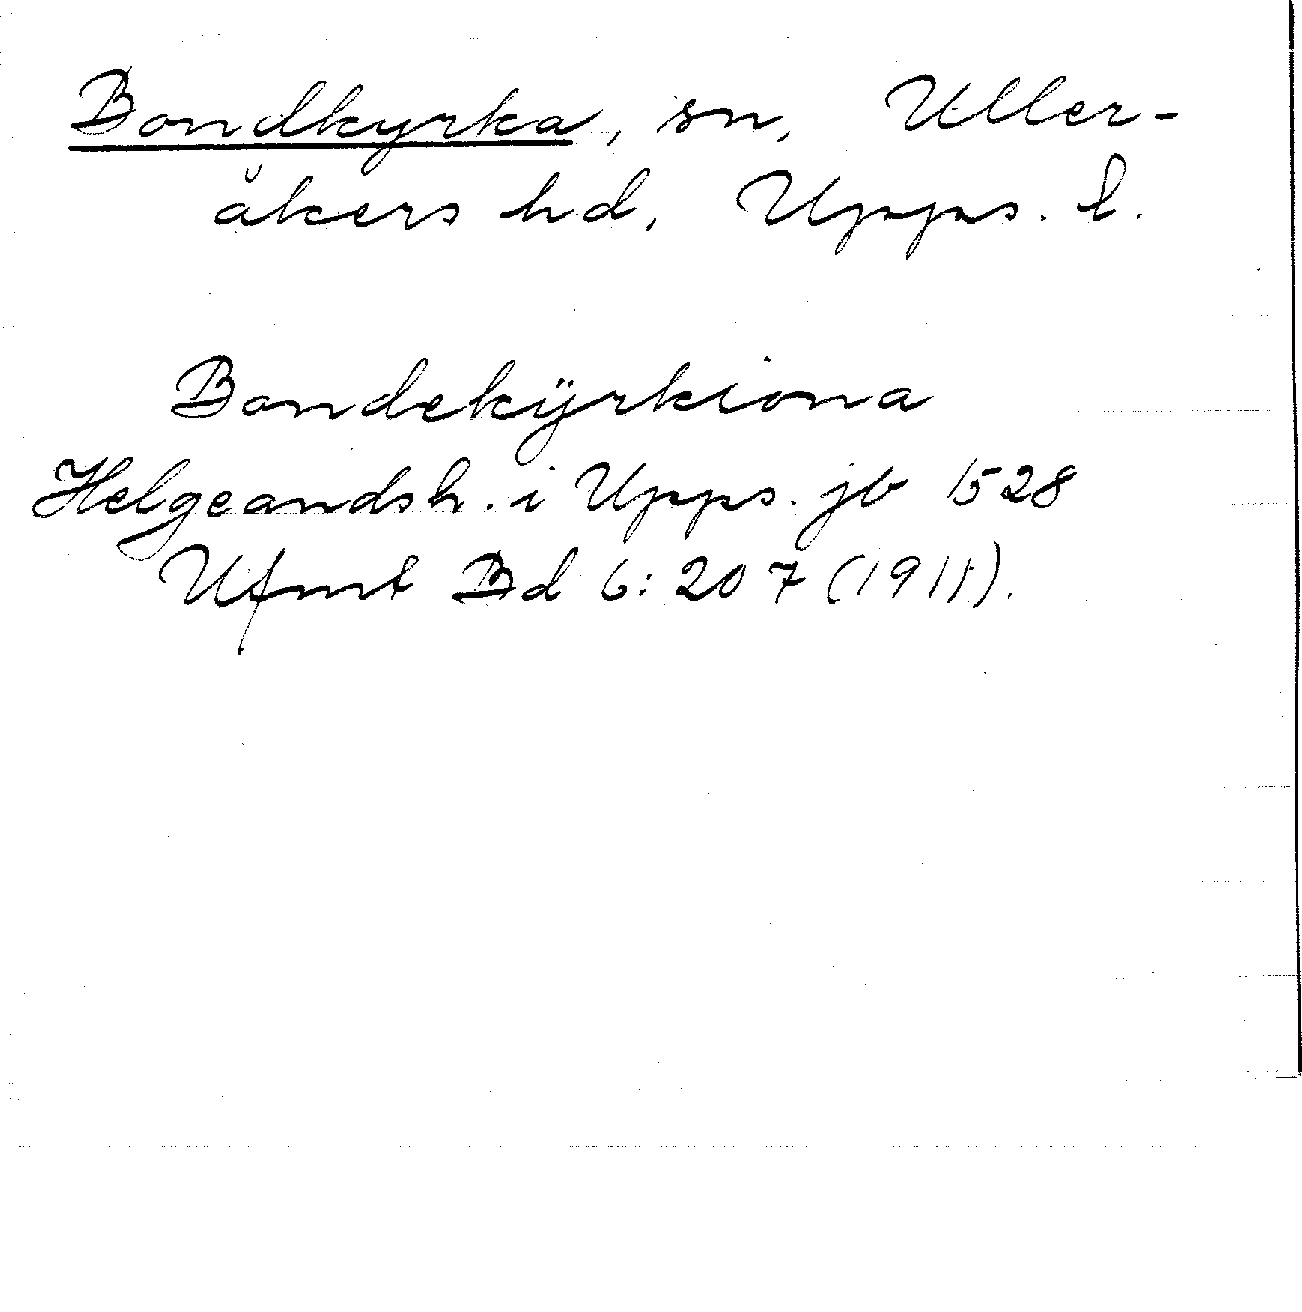 Bondkyrka, sn, Uller-
åkers hd, Upps. l.
Bondekÿrkiona
Helgeandsh. i Upps. jb 1528
Ufmt Bd 6:207 (1911).